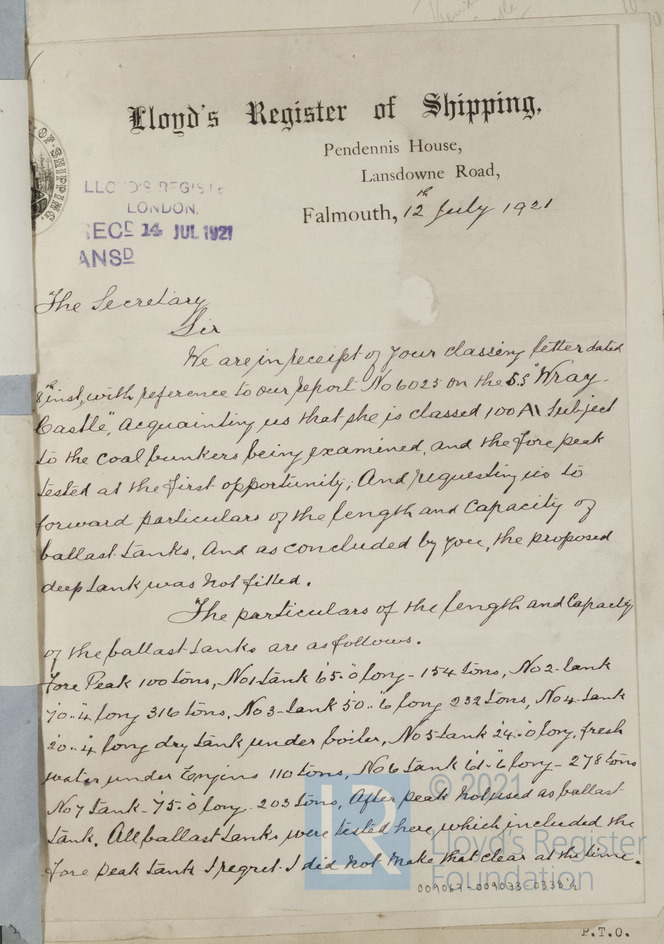 Lloyd's Register of Shipping,
Pendennis House,
Lansdowne Road,
Falmouth, 12th July 1921
OF SHIPPING.
LLOYD'S REGISTE
LONDON.
RECD 14 JUL 1921
ANSD
The Secretary
Sir
We are in receipt of your classing letter dated
8th inst, with reference to our report No 6025 on the S.S "Wray
Castle", acquainting us that she is classed 100 A1 Subject
to the coal bunkers being examined, and the fore peak
tested at the first opportunity; And requesting us to
forward particulars of the length and capacity of
ballast tanks, And as concluded by you, the proposed
deep tank was not fitted.
The particulars of the length and Capacity
of the ballast tanks are as follows.
Fore Peak 100 tons, No 1 tank 65'-0 long - 154 tons, No 2-tank
70'-4 long 316 tons, No 3-tank 50'-6 long 232 tons, No 4-tank
20'-4 long dry tank under boiler, No 5 tank 24'-0 long, fresh
water under Engine 110 tons, No 6 tank 61'-6 long - 278 tons
No 7 tank - 75'-0 long - 203 tons, After peak not used as ballast
tank. All ballast tanks were tested here, which included the
Fore peak tank I regret I did not make that clear at the time.
© 2021
LR
Lloyd's Register
Foundation
009067-009073-0338 1/2
P.T.O.